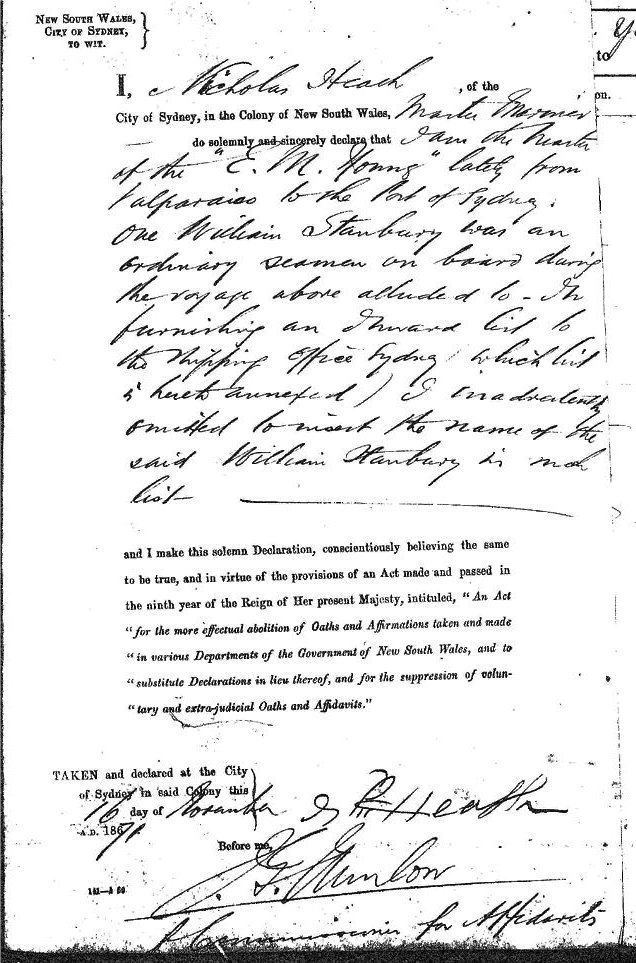 NEW SOUTH WALES,
CITY OF SYDNEY,
TO WIT.
y
to
on.
I, Nicholas Heath, of the
City of Sydney, in the Colony of New South Wales, Master Mariner
do solemnly and sincerely declare that I am the Master
of the "E. M. Young" lately from
Valparaiso to the Port of Sydney.
One William Stanbury was an
ordinary seaman on board during
the voyage above alluded to - In
furnishing an Inward list to
the Shipping Office Sydney (which list
is hereto annexed) I inadvertently
omitted to insert the name of the
said William Stanbury in such
list
and I make this solemn Declaration, conscientiously believing the same
to be true, and in virtue of the provisions of an Act made and passed in
the ninth year of the Reign of Her present Majesty, intituled, "An Act
"for the more effectual abolition of Oaths and Affirmations taken and made
"in various Departments of the Government of New South Wales, and to
"substitute Declarations in lieu thereof, and for the suppression of volun-
"tary and extra-judicial Oaths and Affidavits."
TAKEN and declared at the City
of Sydney in said Colony this
16 day of November Heath
A.D. 1871.
Before me,
A Commissioner for Affidavits